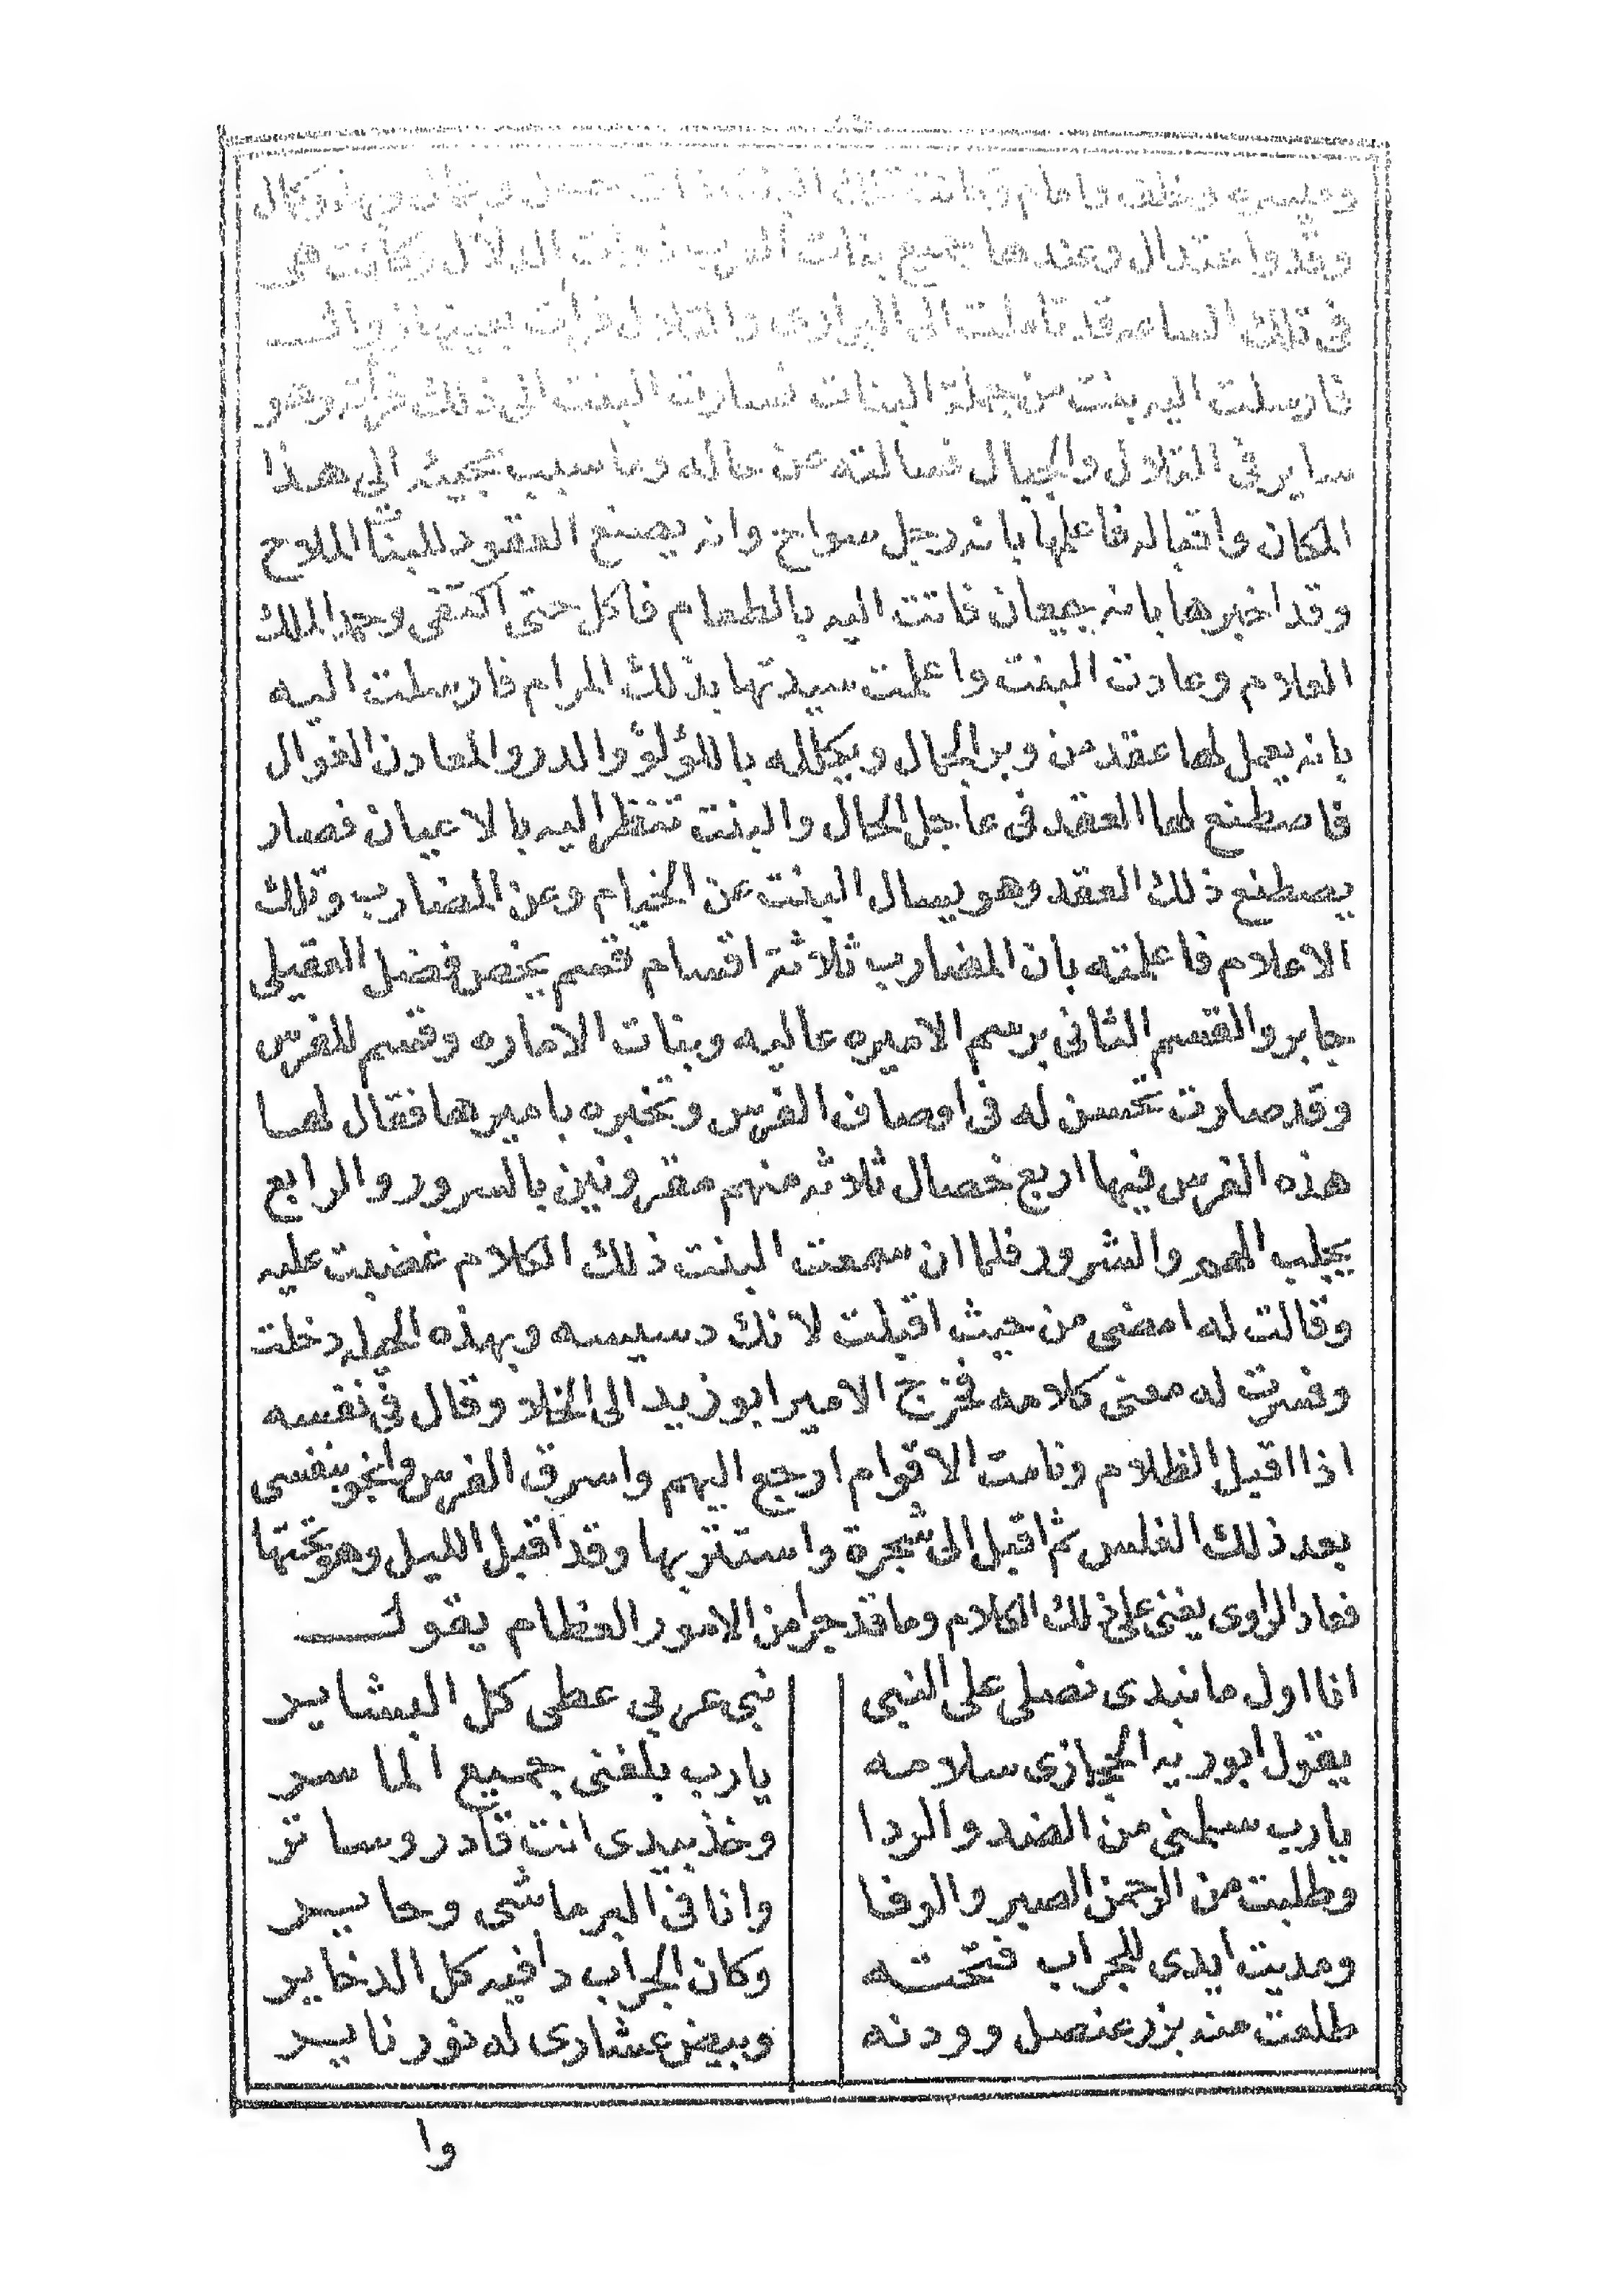 وميسره وخلف وامام وكانت تلك البنت ذات حسن وجمال وبهاء وكمال
وقد واعتدال وعندها جميع بنات العرب ذوات الدلال وكانت هى
فى تلك الساعه قد تاملت الى البرارى والتلال فرات بعينها زوال
فارسلت اليه بنت من جملة البنات فسارت البنت الى ذلك فراته وهو
ساير فى التلال والجبال فسالته عن حاله وما سبب مجيئه الى هذا
المكان واقباله فاعلمها بانه رجل سواح وانه يصنع العقود للبنات الملاح
وقد اخبرها بانه جيعان فاتت اليه بالطعام فاكل حتى اكتفى وحمد الملك
العلام وعادت البنت واعلمت سيدتها بذلك المرام فارسلت اليه
بانه يعمل لها عقد من وبر الجمال ويكلله باللؤلؤ والدر والمعادن الغوال
فاصطنع لها العقد فى عاجل الحال والبنت تنظر اليه بالاعيان فصار
يصطنع ذلك العقد وهو يسال البنت عن الخيام وعن المضارب وتلك
الاعلام فاعلمته بان المضارب ثلاثة اقسام قسم يخص فضل العقيلى
جابر والقسم الثانى برسم الاميره عاليه وبنات الاماره وقسم للفرس
وقد صارت تحسن له فى اوصاف الفرس وتخبره باميرها فقال لها
هذه الفرس فيها اربع خصال ثلاثه منهم مقرونين بالسرور والرابع
يجلب الهم والشرور فلما ان سمعت البنت ذلك الكلام غضبت عليه
وقالت له امضى من حيث اقبلت لانك دسيسه وبهذه الحيله دخلت
وفسرت له معنى كلامه فخرج الامير ابوزيد الى الخلا وقال فى نفسه
اذا اقبل الظلام ونامت الاقوام ارجع اليهم واسرق الفرس وانجو بنفسى
بعد ذلك الغلس ثم اقبل الى شجرة واستتر بها وقد اقبل الليل وهو تحتها
فعاد الراوى يغنى على ذلك الكلام وما قد جرا من الامور العظام يقول
انا اول ما نبدى نصلى على النبى نبى عربي عطى كل البشاير
يقول ابوزيد الحجازى سلامه يارب بلغنى جميع الما سر
يارب سلمنى من الضد والردا وخذ بيدى انت قادر وساتر
وطلبت من الرحمن الصبر والوفا وانا فى البر ماشى وحاير
ومديت ايدى للجراب فتحته وكان الجراب دافيه كل الدخاير
طلعت منه بزر عنصل وودنه وبيض عشارى له نور ناير
وا